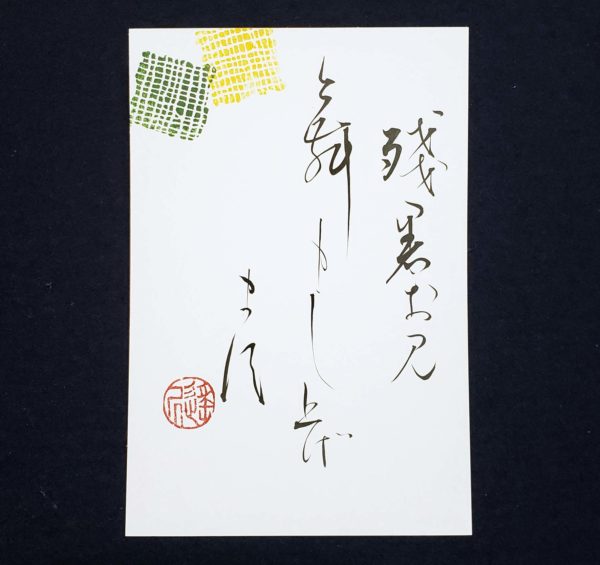 残暑お見
舞申し上げ
ます